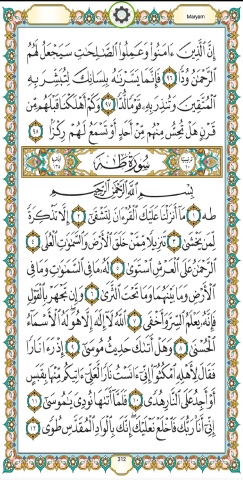 Maryam
إِنَّ ٱلَّذِينَ ءَامَنُوا۟ وَعَمِلُوا۟ ٱلصَّـٰلِحَـٰتِ سَيَجْعَلُ لَهُمُ
ٱلرَّحْمَـٰنُ وُدًّا ٩٦ فَإِنَّمَا يَسَّرْنَـٰهُ بِلِسَانِكَ لِتُبَشِّرَ بِهِ
ٱلْمُتَّقِينَ وَتُنذِرَ بِهِۦ قَوْمًا لُّدًّا ٩٧ وَكَمْ أَهْلَكْنَا قَبْلَهُم مِّن
قَرْنٍ هَلْ تُحِسُّ مِنْهُم مِّنْ أَحَدٍ أَوْ تَسْمَعُ لَهُمْ رِكْزًۢا ٩٨
سُورَةُ طه
بِسْمِ ٱللَّهِ ٱلرَّحْمَـٰنِ ٱلرَّحِيمِ
طه ١ مَآ أَنزَلْنَا عَلَيْكَ ٱلْقُرْءَانَ لِتَشْقَىٰٓ ٢ إِلَّا تَذْكِرَةً
لِّمَن يَخْشَىٰ ٣ تَنزِيلًا مِّمَّنْ خَلَقَ ٱلْأَرْضَ وَٱلسَّمَـٰوَٰتِ ٱلْعُلَى ٤
ٱلرَّحْمَـٰنُ عَلَى ٱلْعَرْشِ ٱسْتَوَىٰ ٥ لَهُۥ مَا فِى ٱلسَّمَـٰوَٰتِ وَمَا فِى
ٱلْأَرْضِ وَمَا بَيْنَهُمَا وَمَا تَحْتَ ٱلثَّرَىٰ ٦ وَإِن تَجْهَرْ بِٱلْقَوْلِ
فَإِنَّهُۥ يَعْلَمُ ٱلسِّرَّ وَأَخْفَى ٧ ٱللَّهُ لَآ إِلَـٰهَ إِلَّا هُوَ لَهُ ٱلْأَسْمَآءُ
ٱلْحُسْنَىٰ ٨ وَهَلْ أَتَىٰكَ حَدِيثُ مُوسَىٰٓ ٩ إِذْ رَءَا نَارًا
فَقَالَ لِأَهْلِهِ ٱمْكُثُوٓا۟ إِنِّىٓ ءَانَسْتُ نَارًا لَّعَلِّىٓ ءَاتِيكُم مِّنْهَا بِقَبَسٍ
أَوْ أَجِدُ عَلَى ٱلنَّارِ هُدًى ١٠ فَلَمَّآ أَتَىٰهَا نُودِىَ يَـٰمُوسَىٰٓ ١١
إِنِّىٓ أَنَا۠ رَبُّكَ فَٱخْلَعْ نَعْلَيْكَ إِنَّكَ بِٱلْوَادِ ٱلْمُقَدَّسِ طُوًى ١٢
312